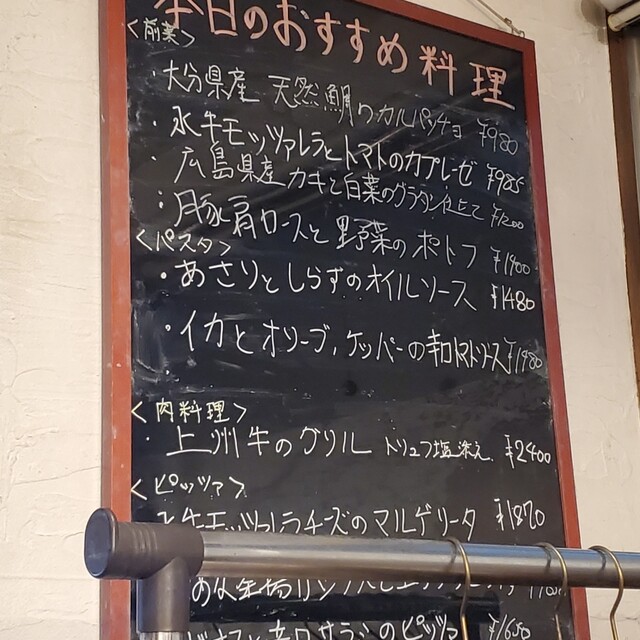 本日のおすすめ料理
<前菜>
・大分県産 天然鯛のカルパッチョ ¥980
・水牛モッツァレラとトマトのカプレーゼ ¥985
・広島県産カキと白菜のグラタン仕立て ¥1200
・豚肩ロースと野菜のポトフ ¥1400
<パスタ>
・あさりとしらすのオイルソース ¥1480
・イカとオリーブ、ケッパーの辛口トマトソース ¥1480
<肉料理>
・上州牛のグリル トリュフ塩添え ¥2400
<ピッツァ>
水牛モッツァレラチーズのマルゲリータ ¥1870
のピッツァ ¥1650